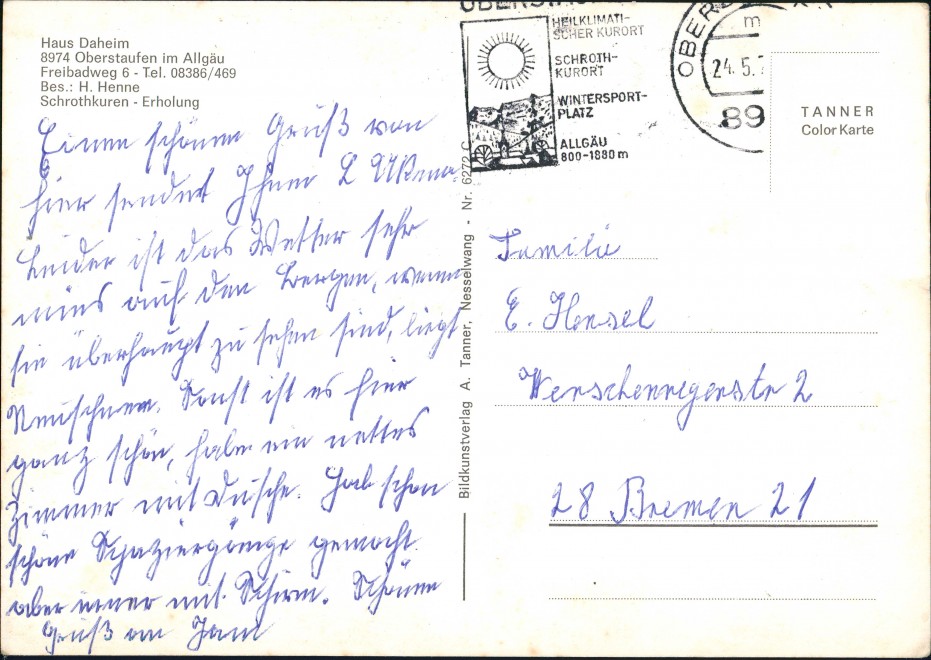 Haus Daheim
8974 Oberstaufen im Allgäu
Freibadweg 6 - Tel. 08386/469
Bes.: H. Henne
Schrothkuren - Erholung
Einen schönen Gruß von
hier sendet Ihnen L
Leider ist das Wetter sehr
mies auf den Bergen, wenn
sie überhaupt zu sehen sind, liegt
Neuschnee. Sonst ist es hier
ganz schön, habe ein nettes
Zimmer mit Dusche. Hab schon
schöne Spaziergänge gemacht.
aber immer mit Schirm. Schönen
Gruß an
Bildkunstverlag A. Tanner, Nesselwang - Nr. 6272 C
HEILKLIMATI-
SCHER KURORT
SCHROTH-
KURORT
WINTERSPORT-
PLATZ
ALLGÄU
800-1880 m
24.5.
89
TANNER
Color Karte
Familie
E. Hensel
2
28 Bremen 21